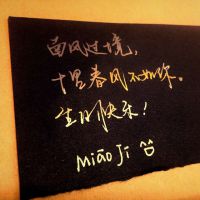 南风过境，
十里春风不如你。
生日快乐！
Miāo Ji